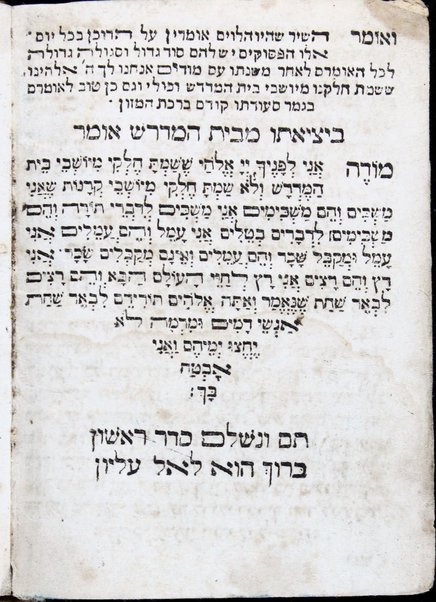 ואומר השיר שהיו הלוים אומרין על הדוכן בכל יום
אלו הפסוקים יש להם סוד גדול וסגולה גדולה
לכל האומרם לאחר משנתו עם מודים אנחנו לך ה׳ אלהינו
ששמת חלקנו מיושבי בית המדרש וכולי וגם כן טוב לאומרם
בגמר סעודתו קודם ברכת המזון
ביציאתו מבית המדרש אומר
מוֹדֶה אֲנִי לְפָנֶיךָ יְיָ אֱלֹהַי שֶׁשַּׂמְתָּ חֶלְקִי מִיוֹשְׁבֵי בֵּית
הַמִּדְרָשׁ וְלֹא שַׂמְתָּ חֶלְקִי מִיוֹשְׁבֵי קְרָנוֹת שֶׁאֲנִי
מַשְׁכִּים וְהֵם מַשְׁכִּימִים אֲנִי מַשְׁכִּים לְדִבְרֵי תוֹרָה וְהֵם
מַשְׁכִּימִים לִדְבָרִים בְּטֵלִים אֲנִי עָמֵל וְהֵם עֲמֵלִים אֲנִי
עָמֵל וּמְקַבֵּל שָׂכָר וְהֵם עֲמֵלִים וְאֵינָם מְקַבְּלִים שָׂכָר אֲנִי
רָץ וְהֵם רָצִים אֲנִי רָץ לְחַיֵּי הָעוֹלָם הַבָּא וְהֵם רָצִים
לִבְאֵר שַׁחַת שֶׁנֶּאֱמַר וְאַתָּה אֱלֹהִים תּוֹרִידֵם לִבְאֵר שַׁחַת
אַנְשֵׁי דָמִים וּמִרְמָה לֹא
יֶחֱצוּ יְמֵיהֶם וַאֲנִי
אֶבְטַח
בָּךְ:
תם ונשלם סדר ראשון
ברוך הוא לאל עליון